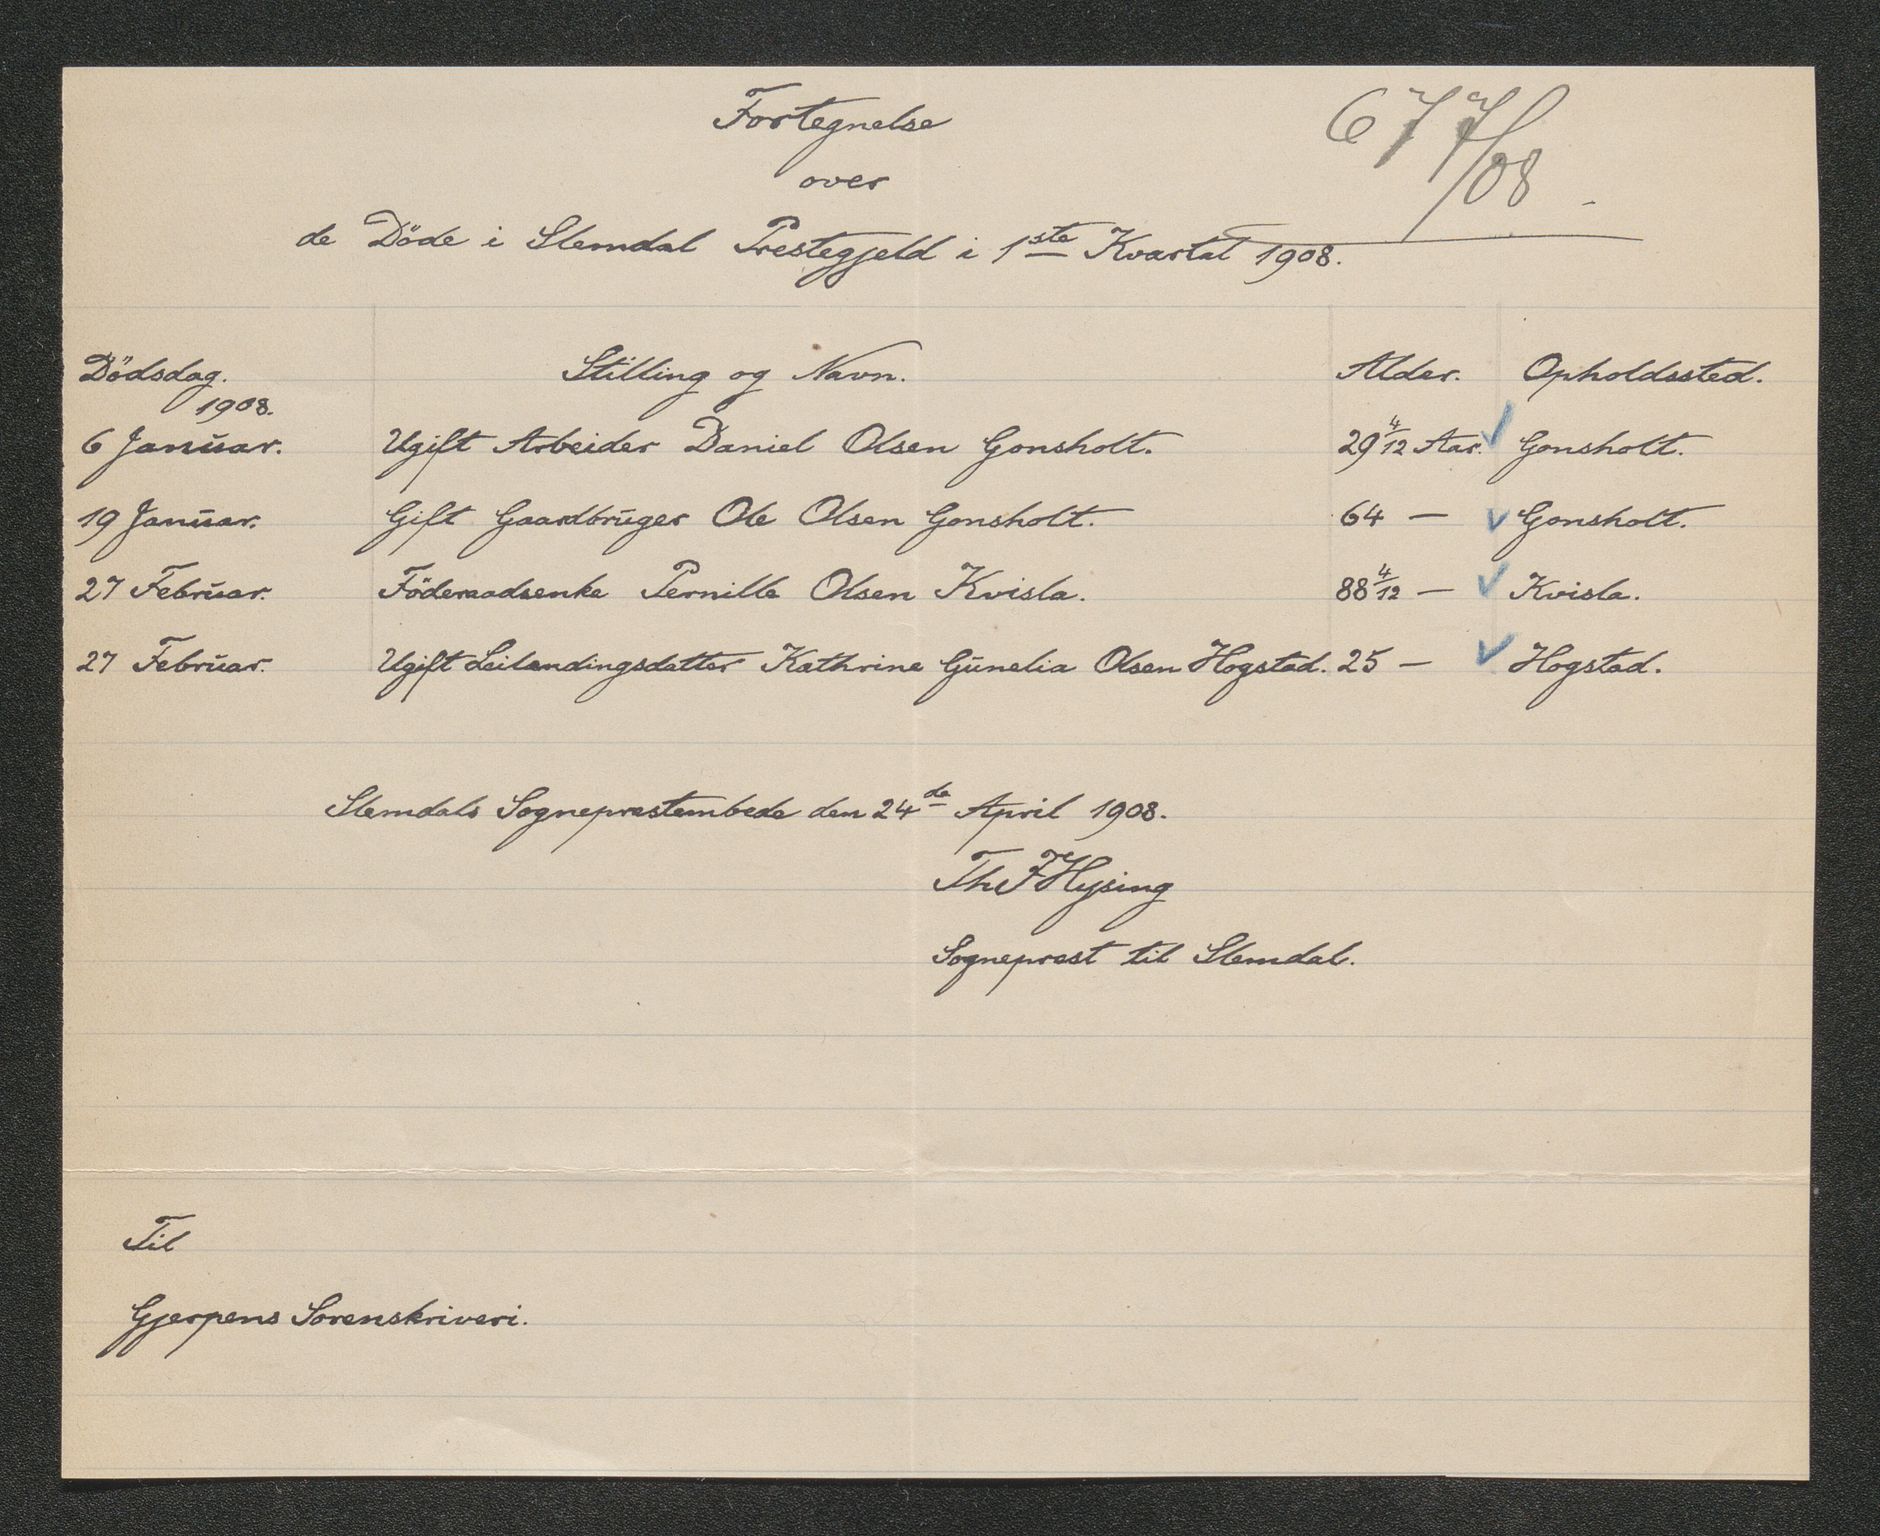 Fortegnelse
677/08
over
de Döde i Slemdal Prestegjeld i 1ste Kvartal 1908.
Dödsdag. Stilling og Navn. Alder. Opholdssted.
1908.
6 Januar. Ugift Arbeider Daniel Olsen Gonsholt. 29 4/12 Aar. ✓ Gonsholt.
19 Januar. Gift Gaardbruger Ole Olsen Gonsholt. 64 — ✓ Gonsholt.
27 Februar. Föderaadsenke Pernille Olsen Kvisla. 88 4/12 — ✓ Kvisla.
27 Februar. Ugift Leilendingsdatter Kathrine Gunelia Olsen Hogstad. 25 — ✓ Hogstad.
Slemdals Sogneprestembede den 24de April 1908.
Th. F Hysing
Sogneprest til Slemdal.
Til
Gjerpens Sorenskriveri.